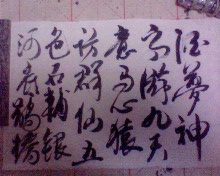 酒夢神
宮游九天
意馬心猿
訪群仙五
色石補銀
河長鵲橋